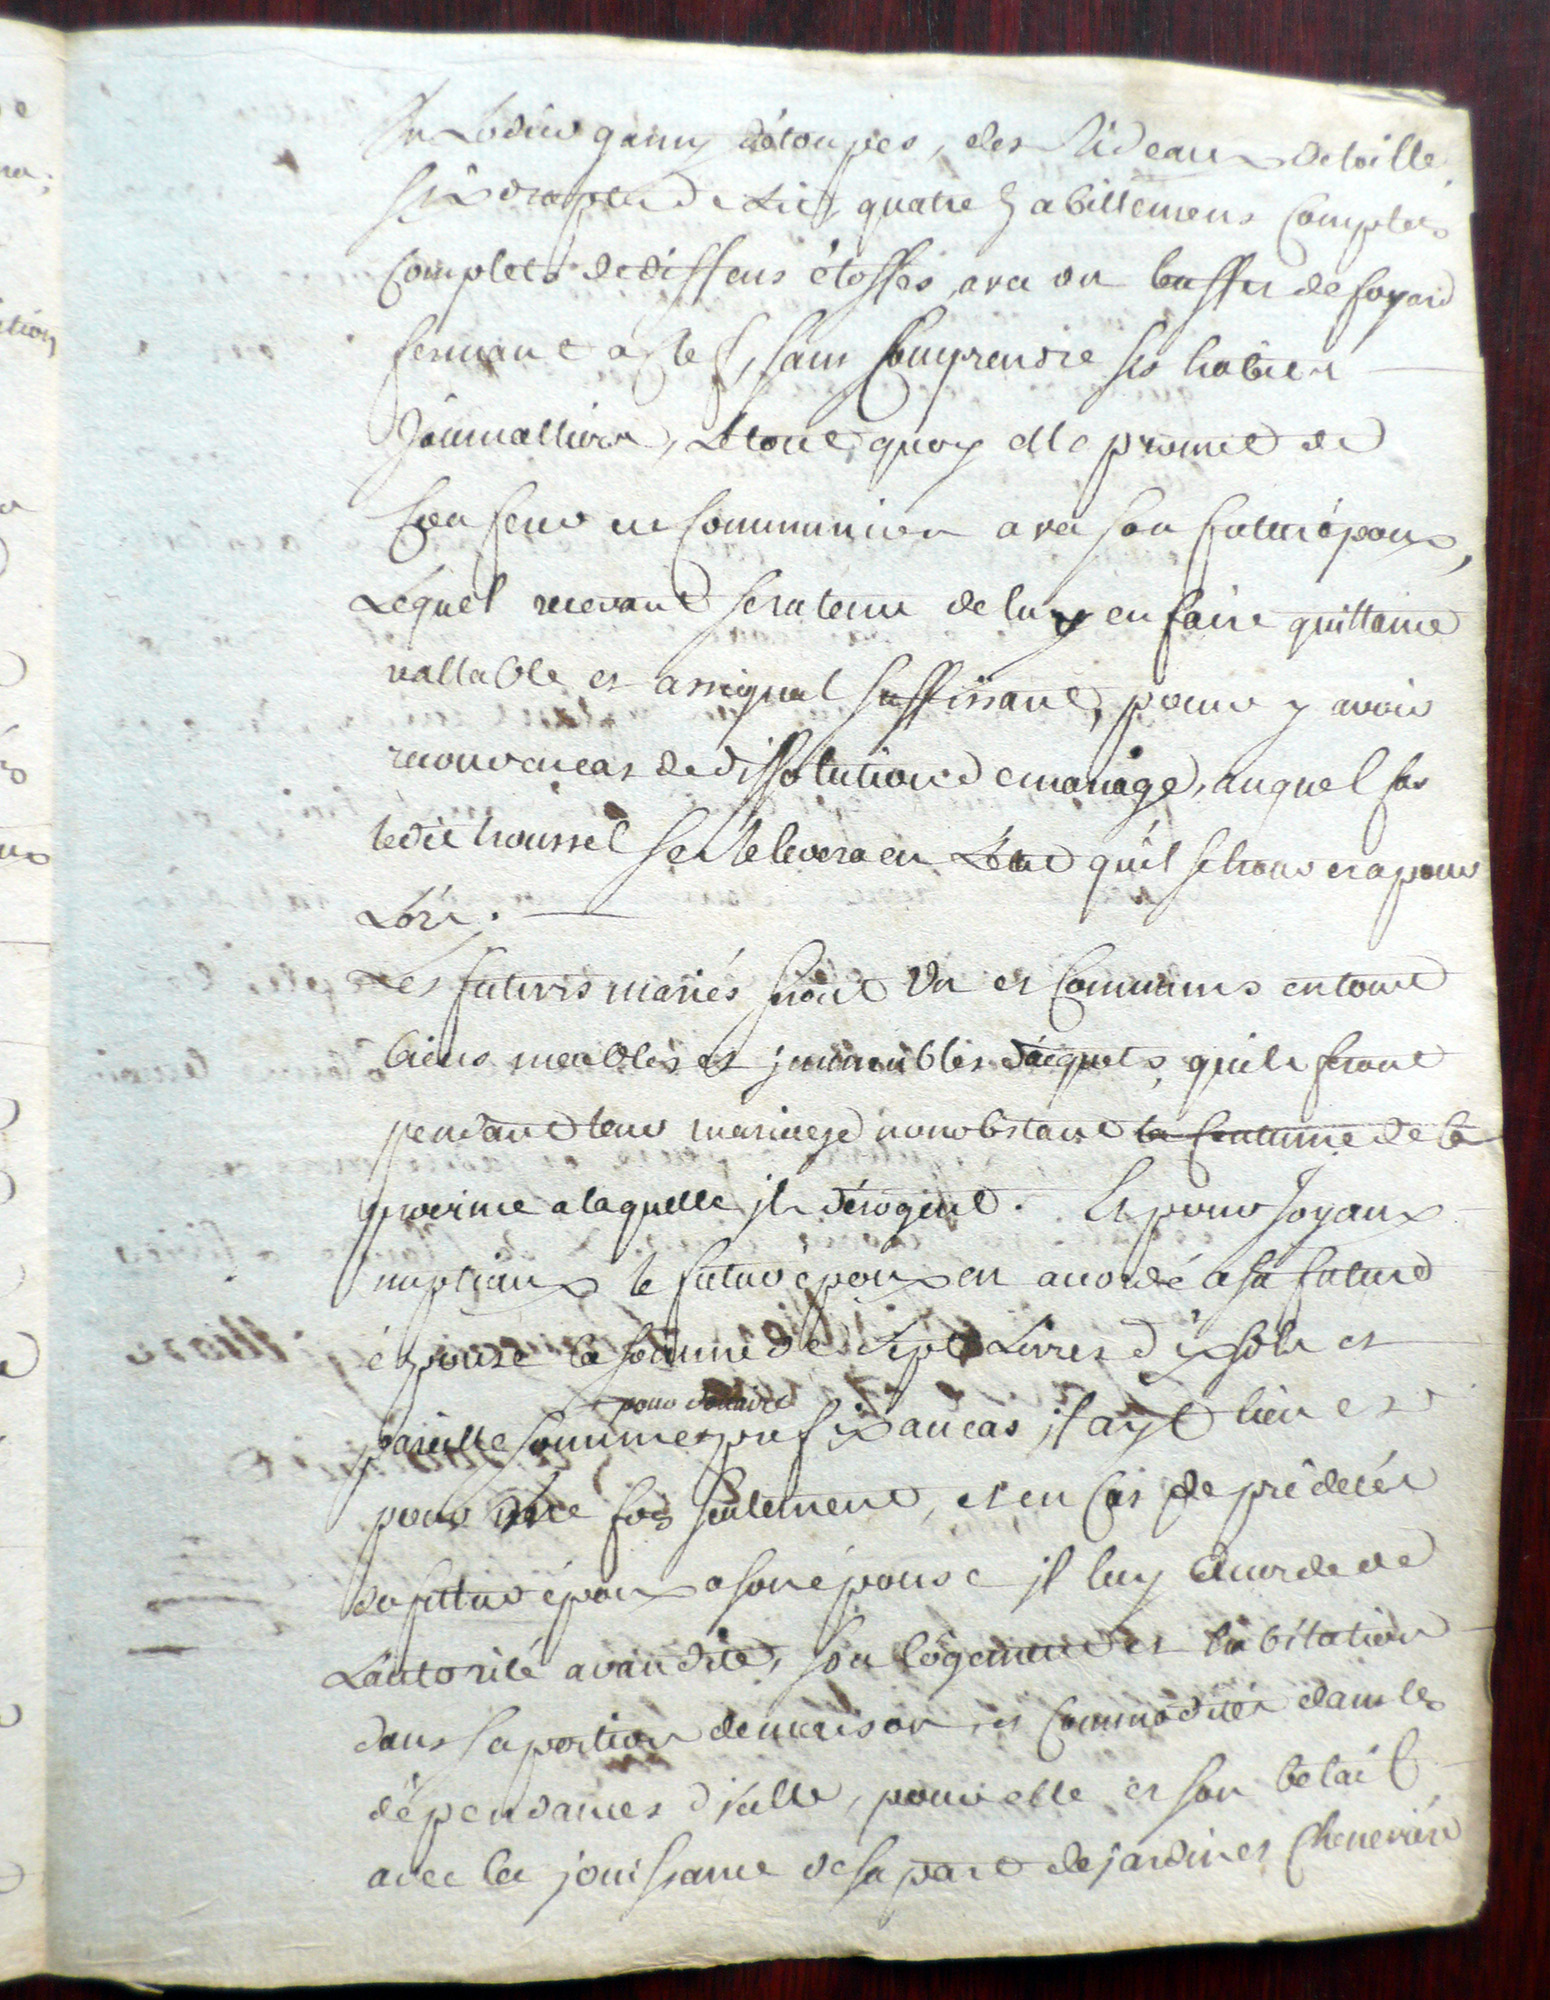 un Lodier garny d'étoupes, des Rideaux de toille,
six draps de Lict, quatre habillemens Complets
Complets de differs étoffes, avec un buffet de foyard
fermant a clef, sans Comprendre ses habits
Journalliers, Le tout quoy elle promet de
Conferer en Communion avec son futur époux,
Lequel recevant sera tenu de luy en faire quittance
vallable et assignal suffissant, pour y avoir
recours en cas de dissolution de mariage, auquel cas
ledit troussel se relevera en L'état qu'il se trouvera pour
Lors.
Les futurs mariés seront Un et Communs en tout
biens meubles et jmmeubles d'acquets, quils feront
pendant leur mariage nonobstant la Coutume de la
province a laquelle jls dérogent. Et pour Joyaux
nuptiaux le futur époux en acordé a sa future
épouse la somme de Sept Livres dix sols et
pour douaire
pareille somme prefix au cas jl ayt lieu et
pour une fois seulement, et en Cas de prédécés
du futur époux a son épouse jl luy accorde de
L'autorité avandite, son logement et habitation
dans sa portion de maison et Commodités dans les
dépendances d'jcelle, pour elle et son betail
avec la jouissance de sa part de jardin et Cheneviére